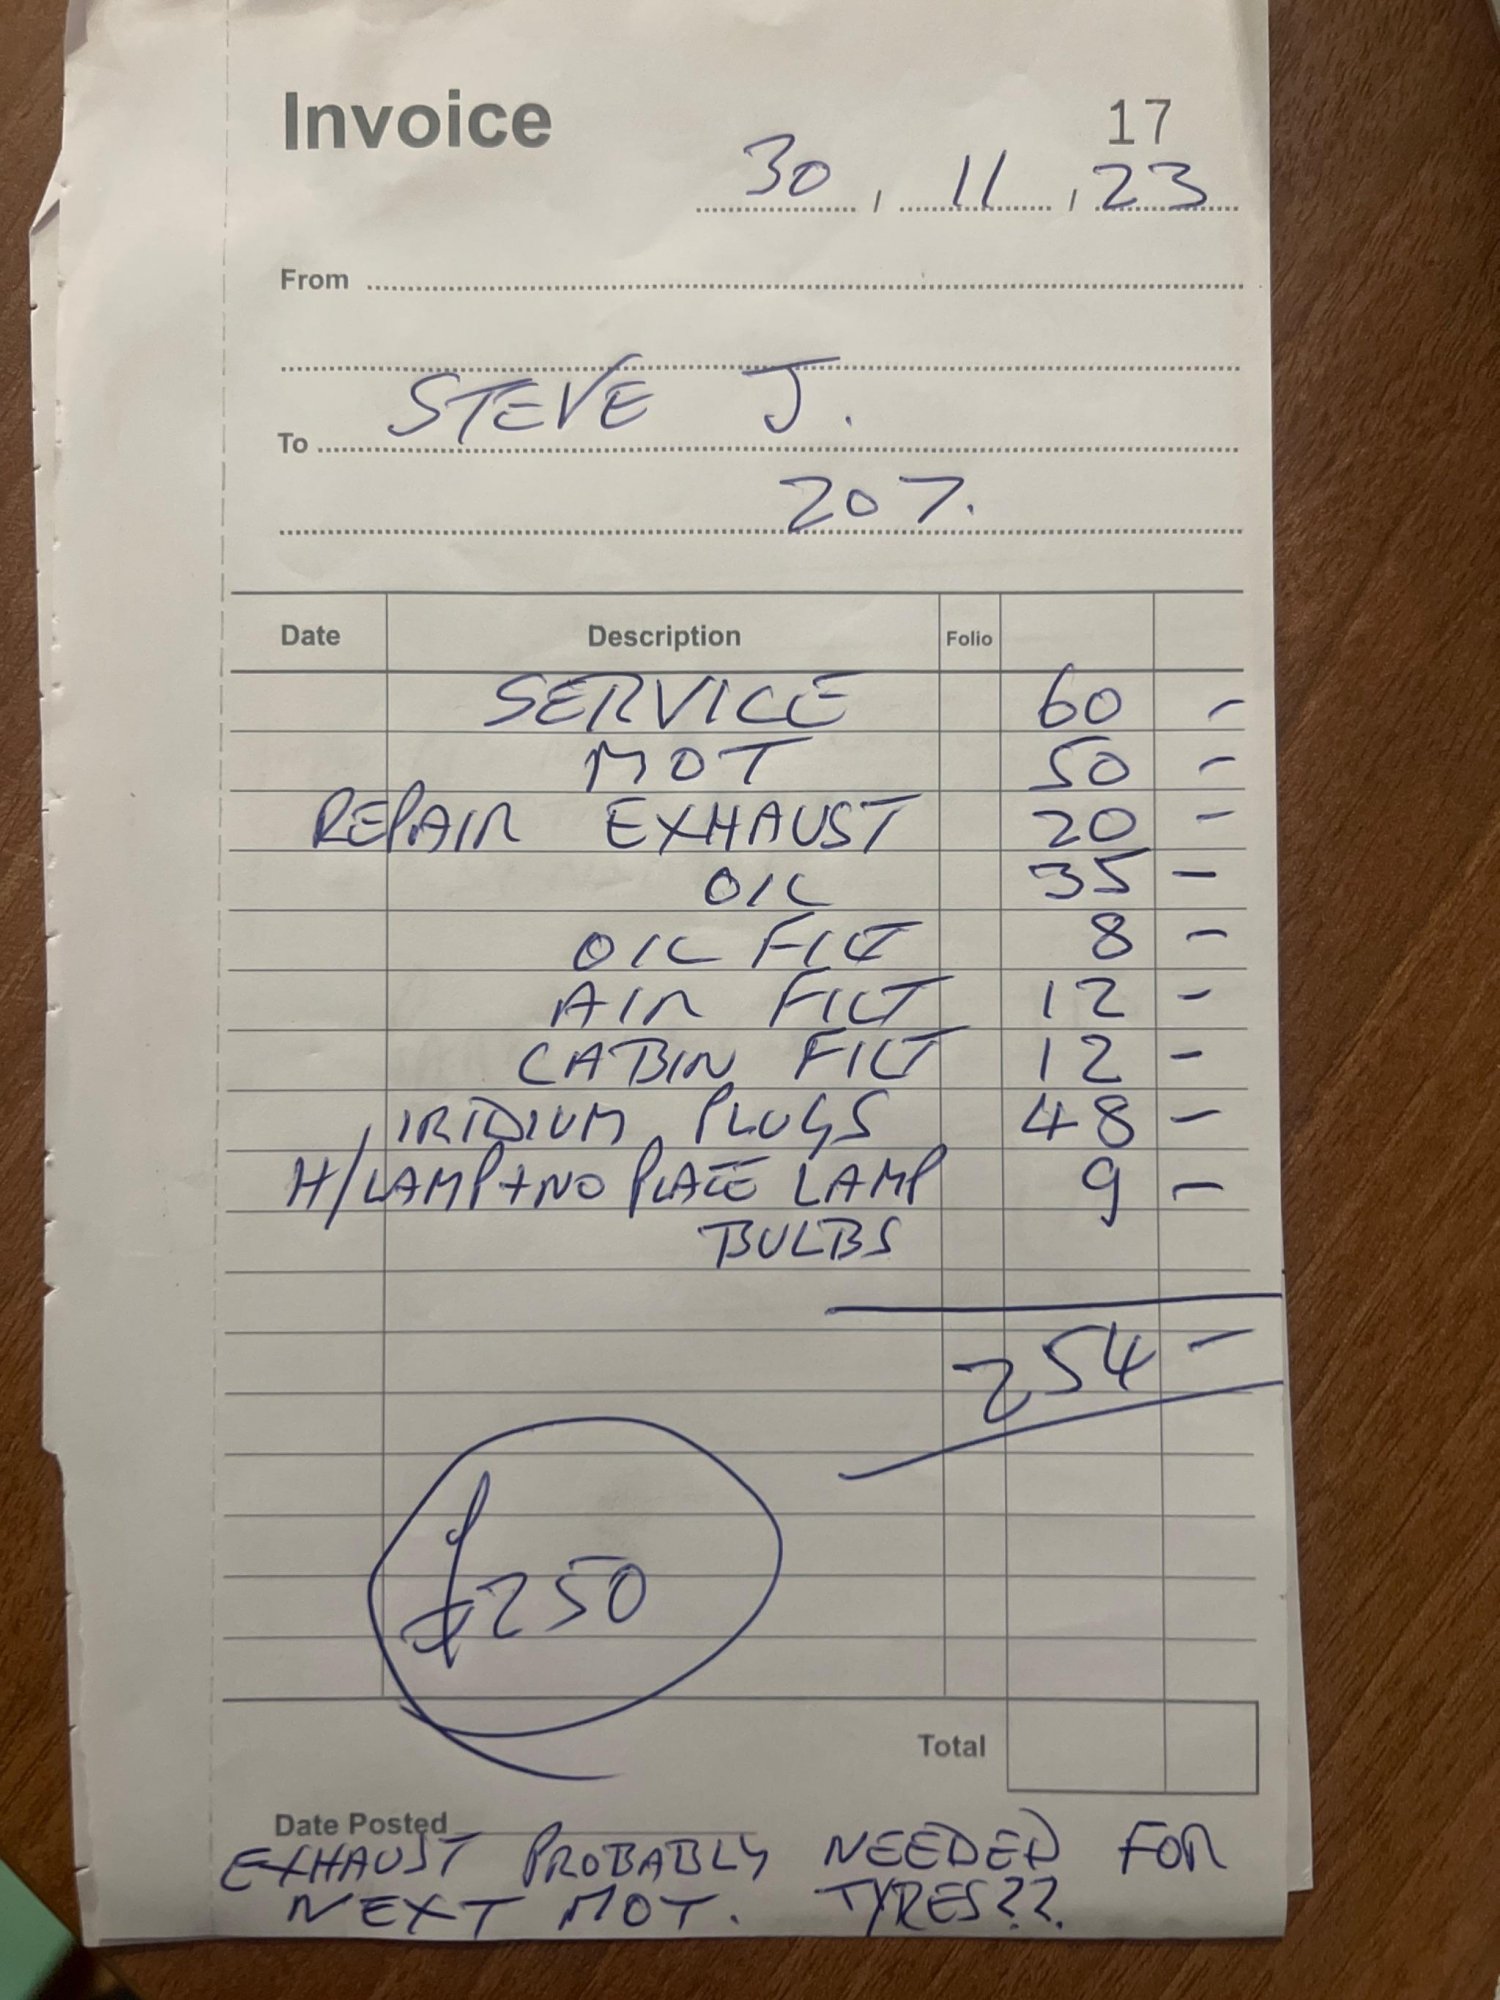 Invoice 17
30 / 11 / 23
From
STEVE J.
To
207.
Date Description Folio
SERVICE 60 -
MOT 50 -
REPAIR EXHAUST 20 -
OIL 35 -
OIL FILT 8 -
AIR FILT 12 -
CABIN FILT 12 -
IRIDIUM PLUGS 48 -
H/LAMP+NO PLATE LAMP 9 -
BULBS
254 -
£250
Total
Date Posted
EXHAUST PROBABLY NEEDED FOR
NEXT MOT. TYRES??